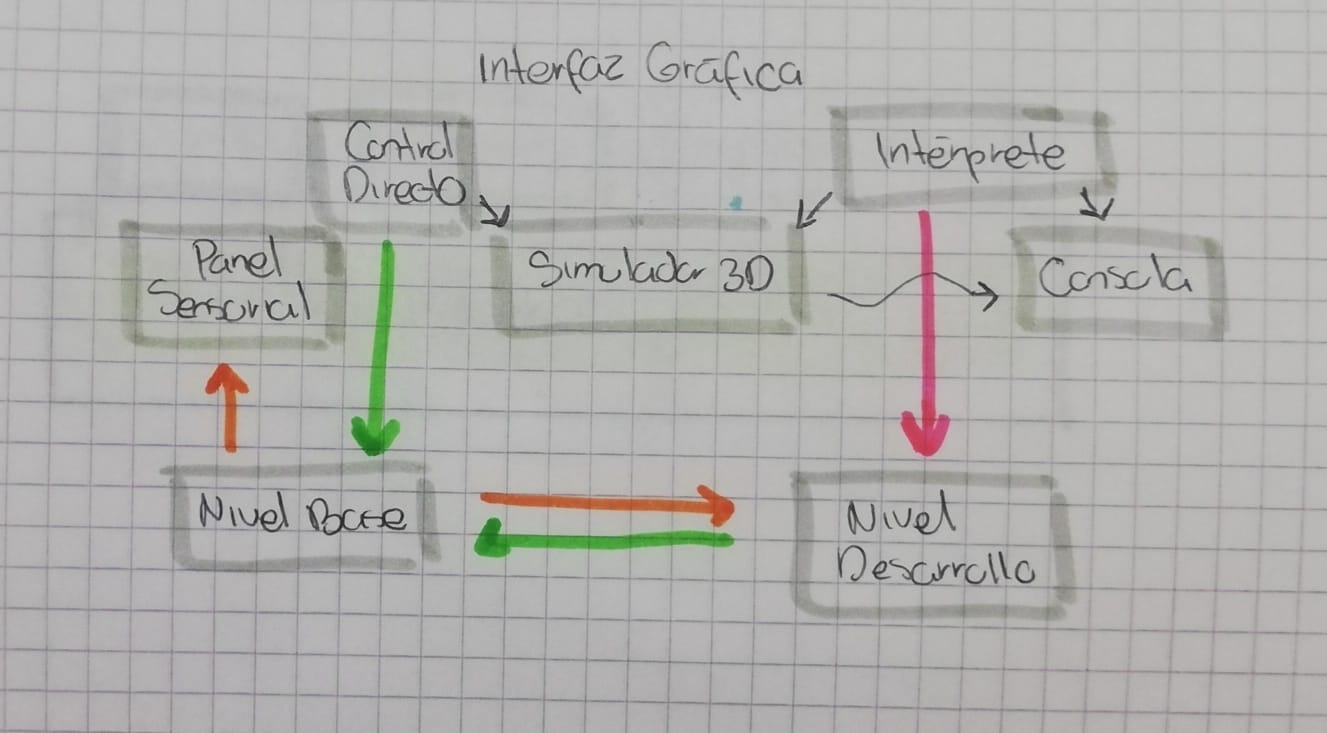 Interfaz Gráfica
Control
Directo
Intérprete
Panel
Sensorial
Simulador 3D
Consola
Nivel Base
Nivel
Desarrollo